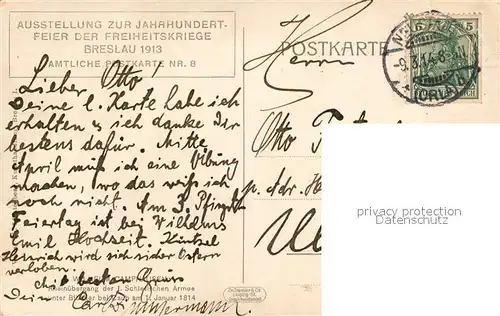 AUSSTELLUNG ZUR JAHRHUNDERT-
FEIER DER FREIHEITSKRIEGE
BRESLAU 1913
AMTLICHE POSTKARTE NR. 8
Lieber Otto!
Deine l. Karte habe ich
erhalten u. ich danke Dir
bestens dafür. Mitte
April muß ich eine Übung
machen, wo das weiß ich
noch nicht. Am 3. Pfingst-
Feiertag ist bei Wilhelms
Emil Hochzeit.
Heinrich wird sich sicher Ostern
verloben.
Mit besten Gruss
Dein Carl
Rheinübergang der 1. Schlesischen Armee
unter Blücher bei Caub am 1. Januar 1814
POSTKARTE
5
-9.3.14.8-
Herrn
Otto
p. Adr. He
privacy protection
www.delcampe.net